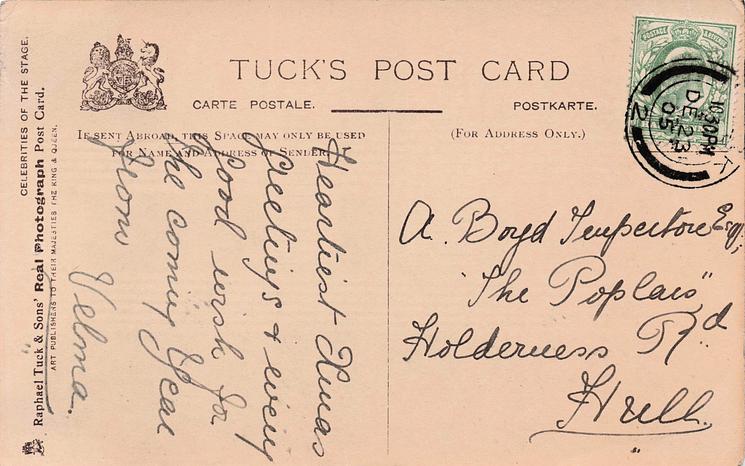 TUCK'S POST CARD
CARTE POSTALE. POSTKARTE.
IF SENT ABROAD, THIS SPACE MAY ONLY BE USED
FOR NAME AND ADDRESS OF SENDER.
(FOR ADDRESS ONLY.)
Heartiest Xmas
Greetings & every
Good wish for
the coming Year
from
Velma.
A. Boyd Temperton Esq.,
"The Poplars"
Holderness Rd
Hull.
POSTAGE & REVENUE
10.30PM
DE 23
05
2
CELEBRITIES OF THE STAGE.
Raphael Tuck & Sons' Real Photograph Post Card.
ART PUBLISHERS TO THEIR MAJESTIES THE KING & QUEEN.